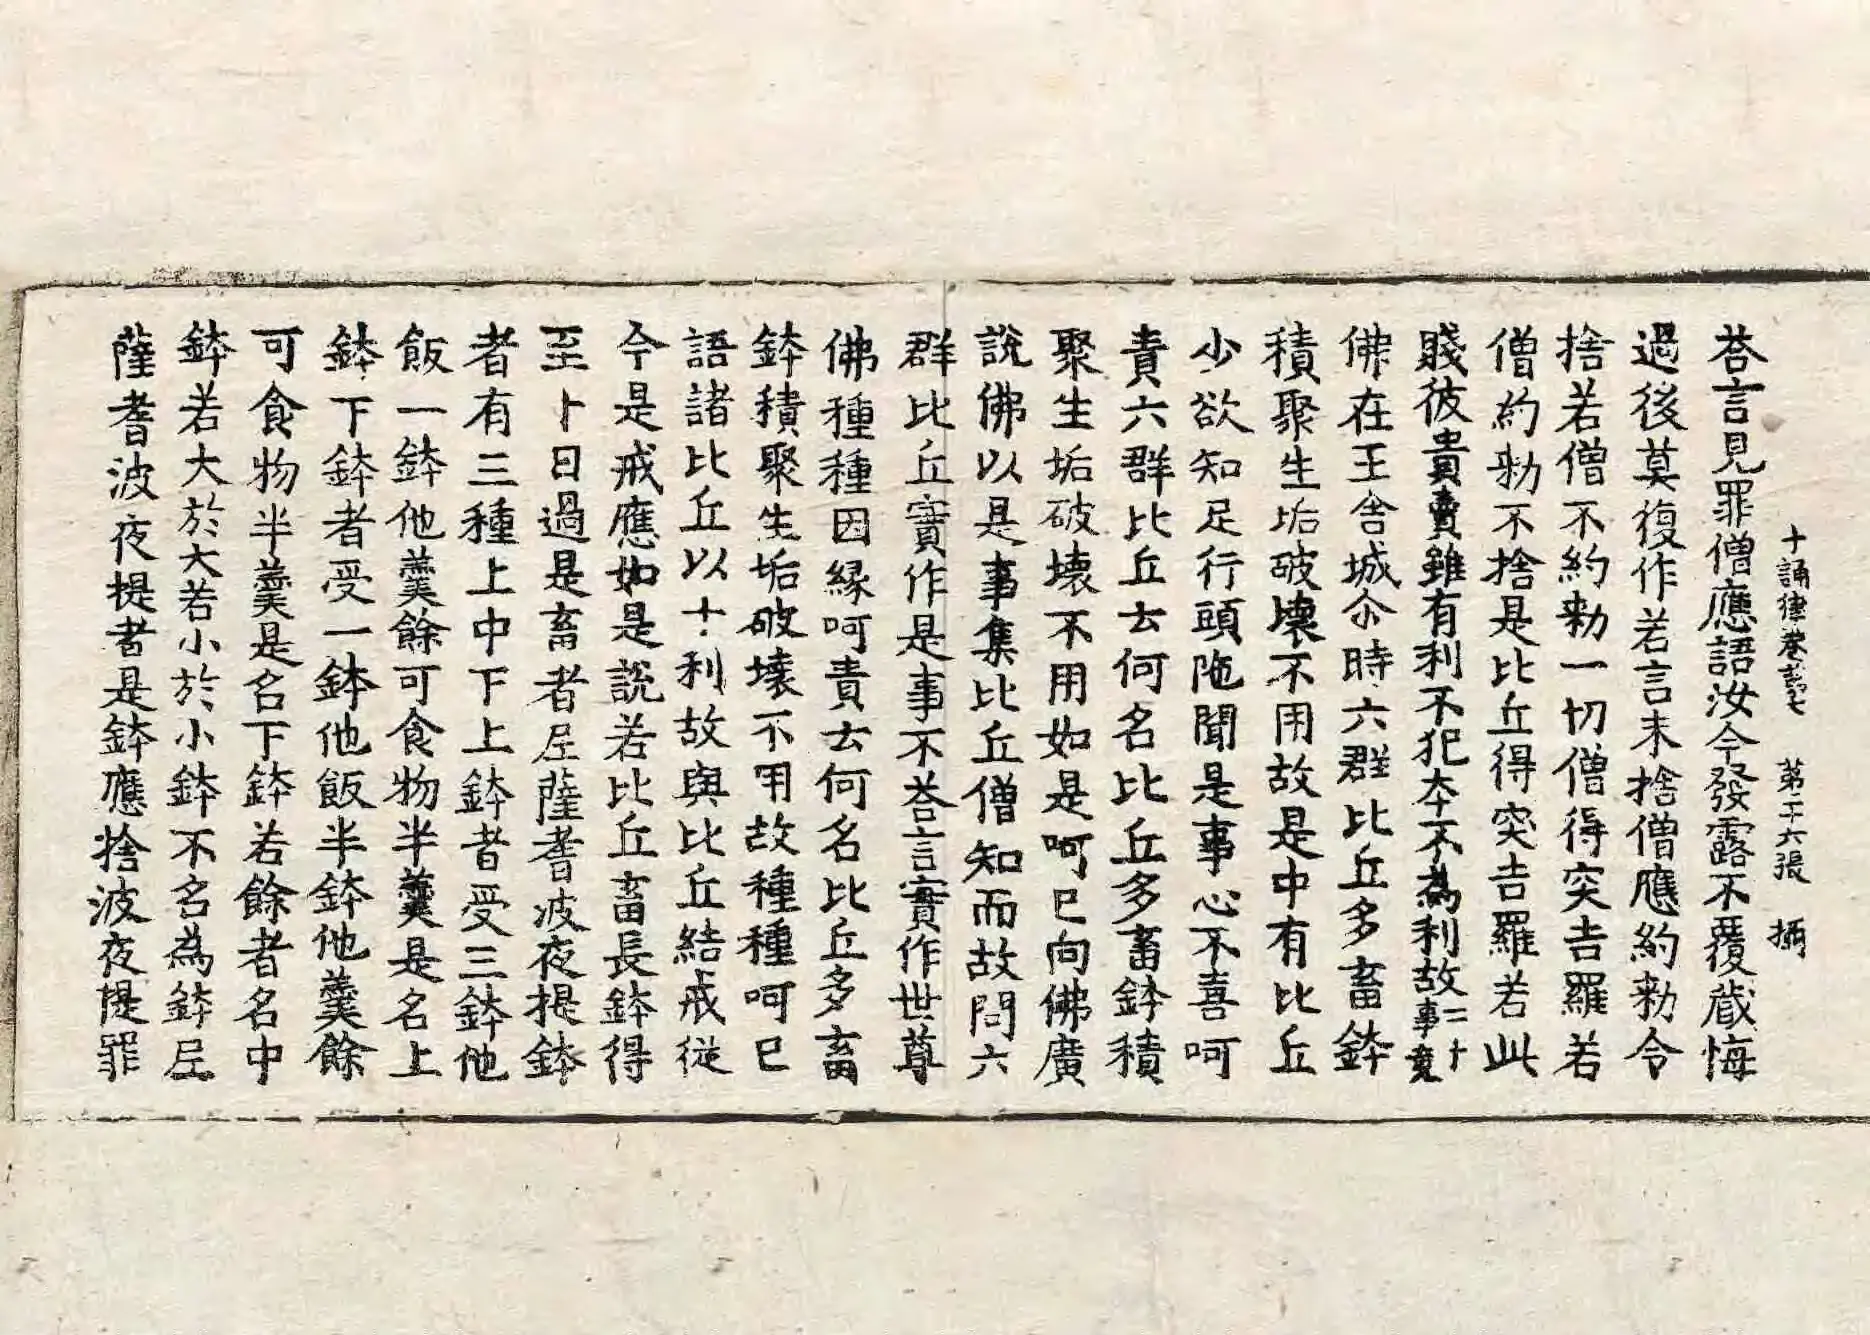 十誦律卷第七 第二十六張 攝
荅言見罪僧應語汝今發露不覆藏悔
過後莫復作若言未捨僧應約勑令
捨若僧不約勑一切僧得突吉羅若
僧約勑不捨是比丘得突吉羅若此
賤彼貴賣雖有利不犯夲不為利故事二十竟
佛在王舍城尒時六群比丘多畜鉢
積聚生垢破壞不用故是中有比丘
少欲知足行頭陁聞是事心不喜呵
責六群比丘去何名比丘多畜鉢積
聚生垢破壞不用如是呵已向佛廣
說佛以是事集比丘僧知而故問六
群比丘實作是事不荅言實作世尊
佛種種因緣呵責去何名比丘多畜
鉢積聚生垢破壞不用故種種呵已
語諸比丘以十利故與比丘結戒從
今是戒應如是說若比丘畜長鉢得
至十日過是畜者尼薩耆波夜提鉢
者有三種上中下上鉢者受三鉢他
飯一鉢他羹餘可食物半羹是名上
鉢下鉢者受一鉢他飯半鉢他羹餘
可食物半羹是名下鉢若餘者名中
鉢若大於大若小於小鉢不名為鉢尼
薩耆波夜提者是鉢應捨波夜提罪